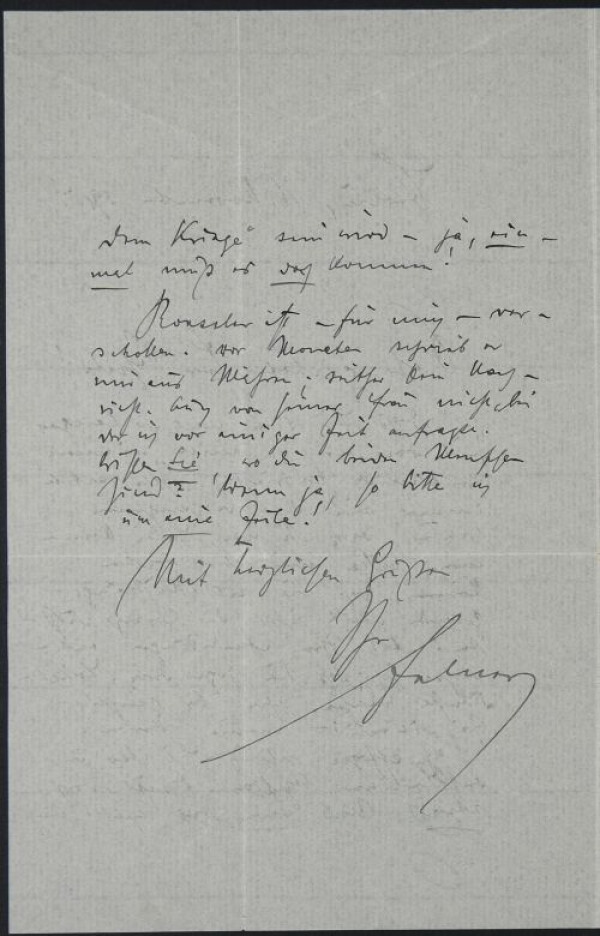 dem Kriege" sein wird – ja, ein-
mal muß es doch kommen!
Roessler ist – für mich – ver-
schollen. Vor Monaten schrieb er
mir aus ; seither kein Nach-
richt. Auch von seiner Frau nicht, bei
der ich vor einiger Zeit anfragte.
Wissen Sie, wo die beiden Menschen
sind? Wenn ja, so bitte ich
um eine Zeile!
Mit herzlichen Grüßen
Ihr